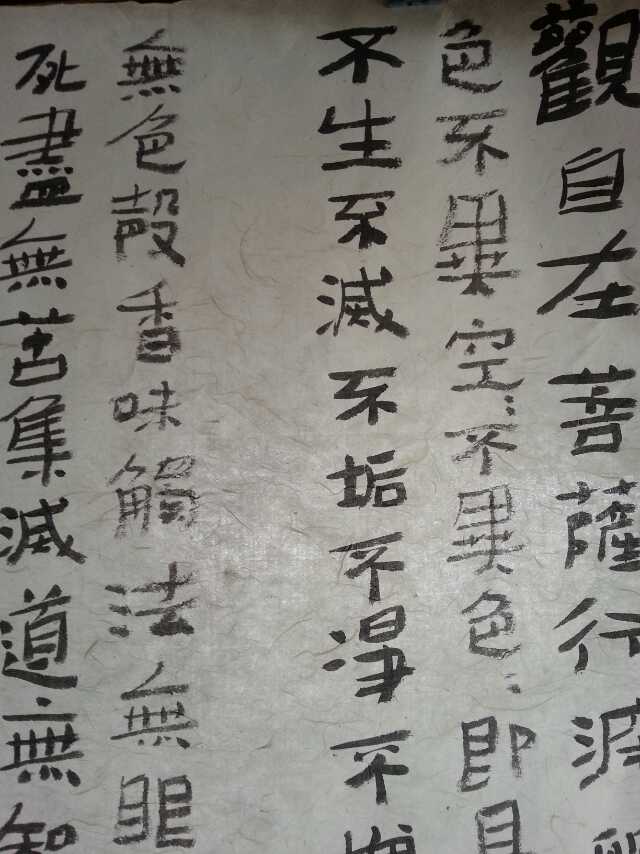 觀自在菩薩行深
色不異空〻不異色〻即是
不生不滅不垢不淨不
無色殸香味觸法無眼
死盡無苦集滅道無知